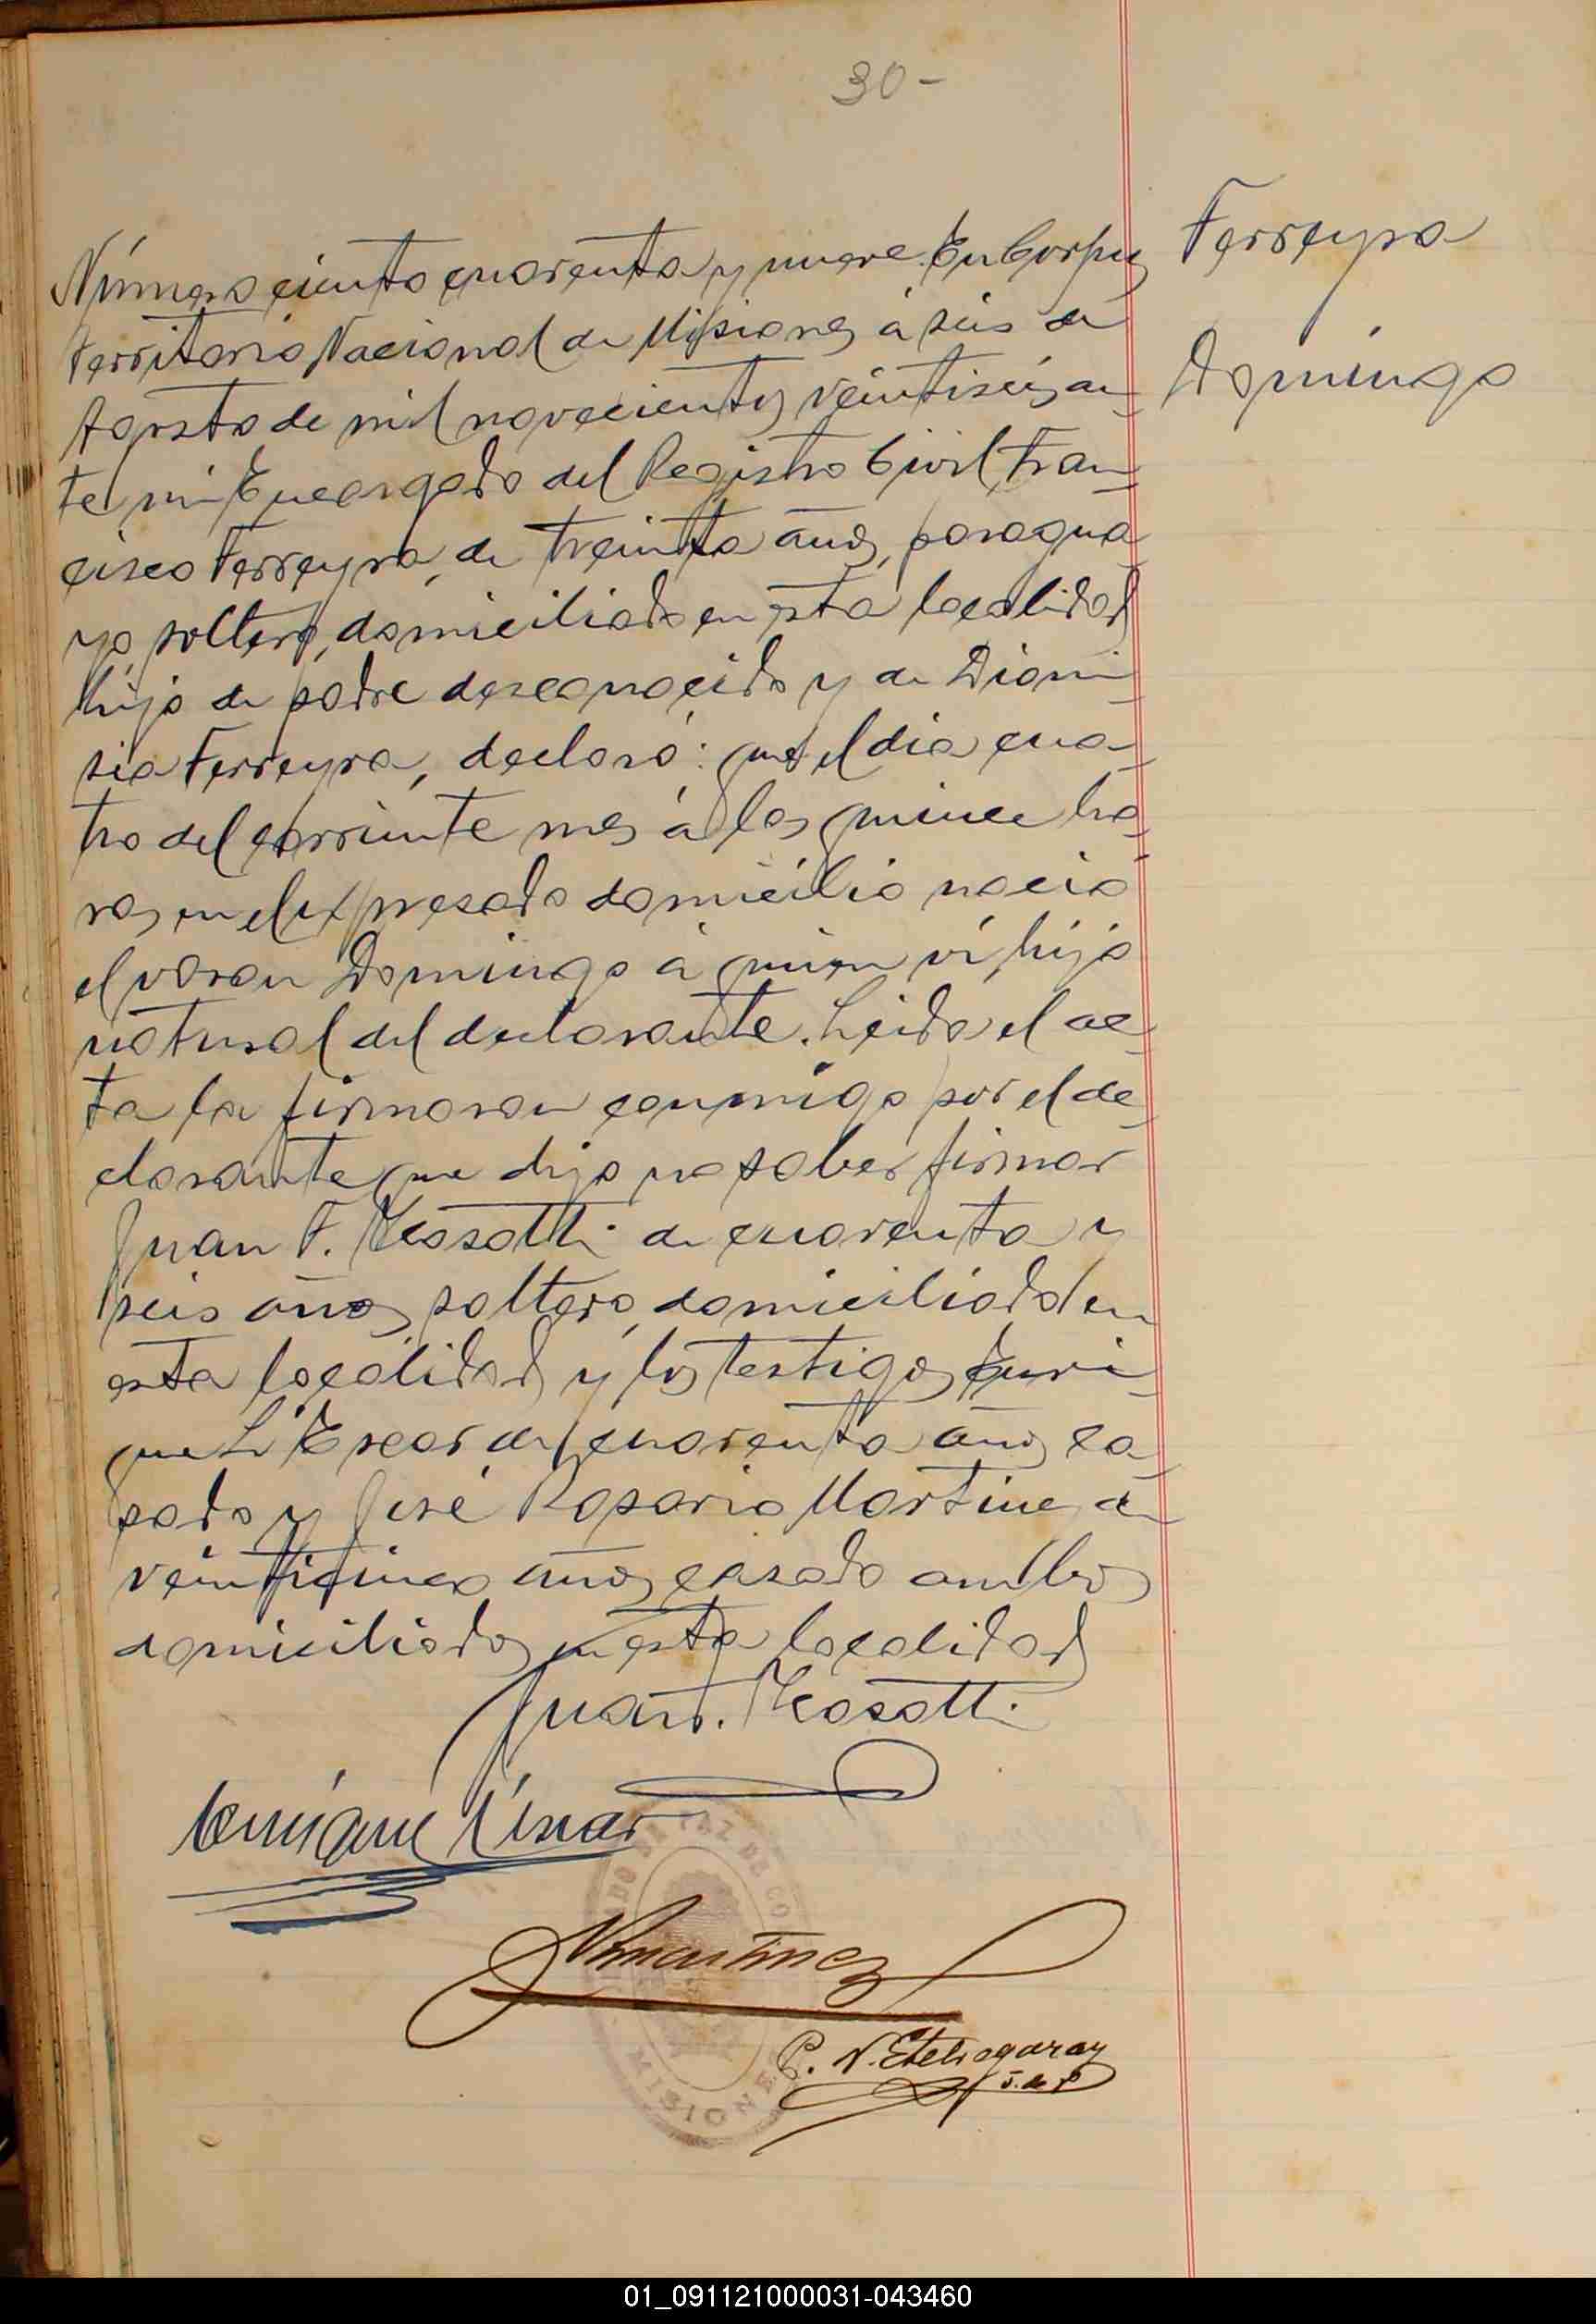 30-
Ferreyra
Domingo
Número ciento cuarenta y nueve. En Corpus
Territorio Nacional de Misiones á seis de
Agosto de mil novecientos veintiseis an-
te mi Encargado del Registro Civil, Fran-
cisco Ferreyra, de treinta años, paragua-
yo, soltero, domiciliado en esta localidad
hijo de padre desconocido y de Dioni-
sia Ferreyra, declaró: que el dia cua-
tro del corriente mes á las quince ho-
ras, en el expresado domicilio nació
el varon Domingo á quien ví, hijo
natural del declarante. Leida el ac-
ta la firmaron conmigo por el de-
clarante que dijo no saber firmar
Juan F. de cuarenta y
seis años, soltero, domiciliado en
esta localidad y los testigos Enri-
que L'Escar de cuarenta años ca-
sado y José Rosario Martinez de
veinticinco años casado ambos
domiciliados en esta localidad
Juan F.
Enrique L'Escar
Martinez
P. N. Etchegaray
J. de P.
JUZGADO DE PAZ DE CO
MISIONES
01_091121000031-043460